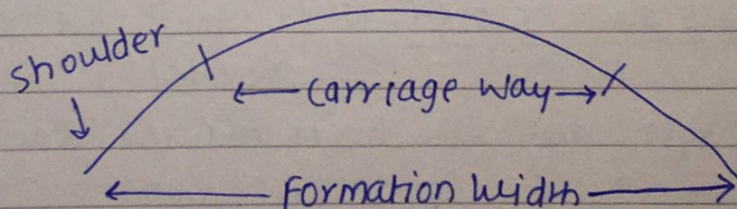 shoulder
carriage way
Formation Width